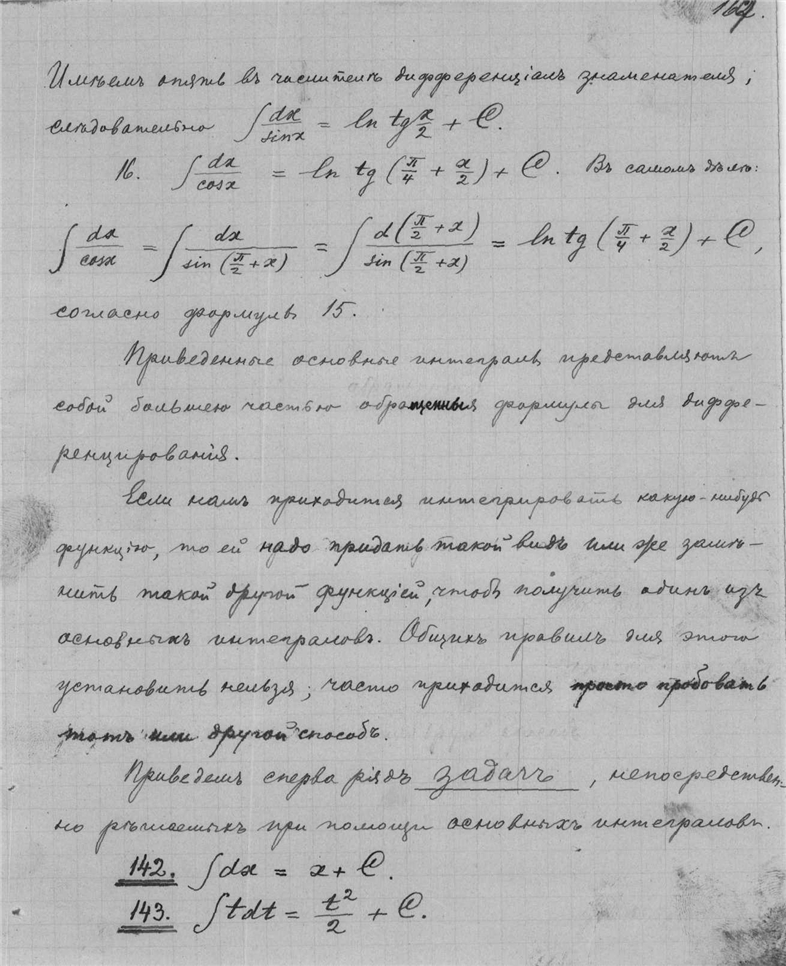 167.
Имѣемъ опять въ числителѣ дифференціалъ знаменателя;
слѣдовательно ∫ dx/sinx = ln tg x/2 + C.
16. ∫ dx/cosx = ln tg (π/4 + x/2) + C. Въ самомъ дѣлѣ:
∫ dx/cosx = ∫ dx/sin(π/2 + x) = ∫ d(π/2 + x)/sin(π/2 + x) = ln tg (π/4 + x/2) + C,
согласно формулѣ 15.
Приведенные основные интегралы представляютъ
собой большею частью обращенныя формулы для диффе-
ренцированія.
Если намъ приходится интегрировать какую-нибудь
функцію, то ей надо придать такой видъ или же замѣ-
нить такой другой функціей, чтобъ получить одинъ изъ
основныхъ интеграловъ. Общихъ правилъ для этого
установить нельзя; часто приходится просто пробовать
тотъ или другой способъ.
Приведемъ сперва рядъ задачъ, непосредствен-
но рѣшаемыхъ при помощи основныхъ интеграловъ.
142. ∫dx = x + C.
143. ∫tdt = t²/2 + C.